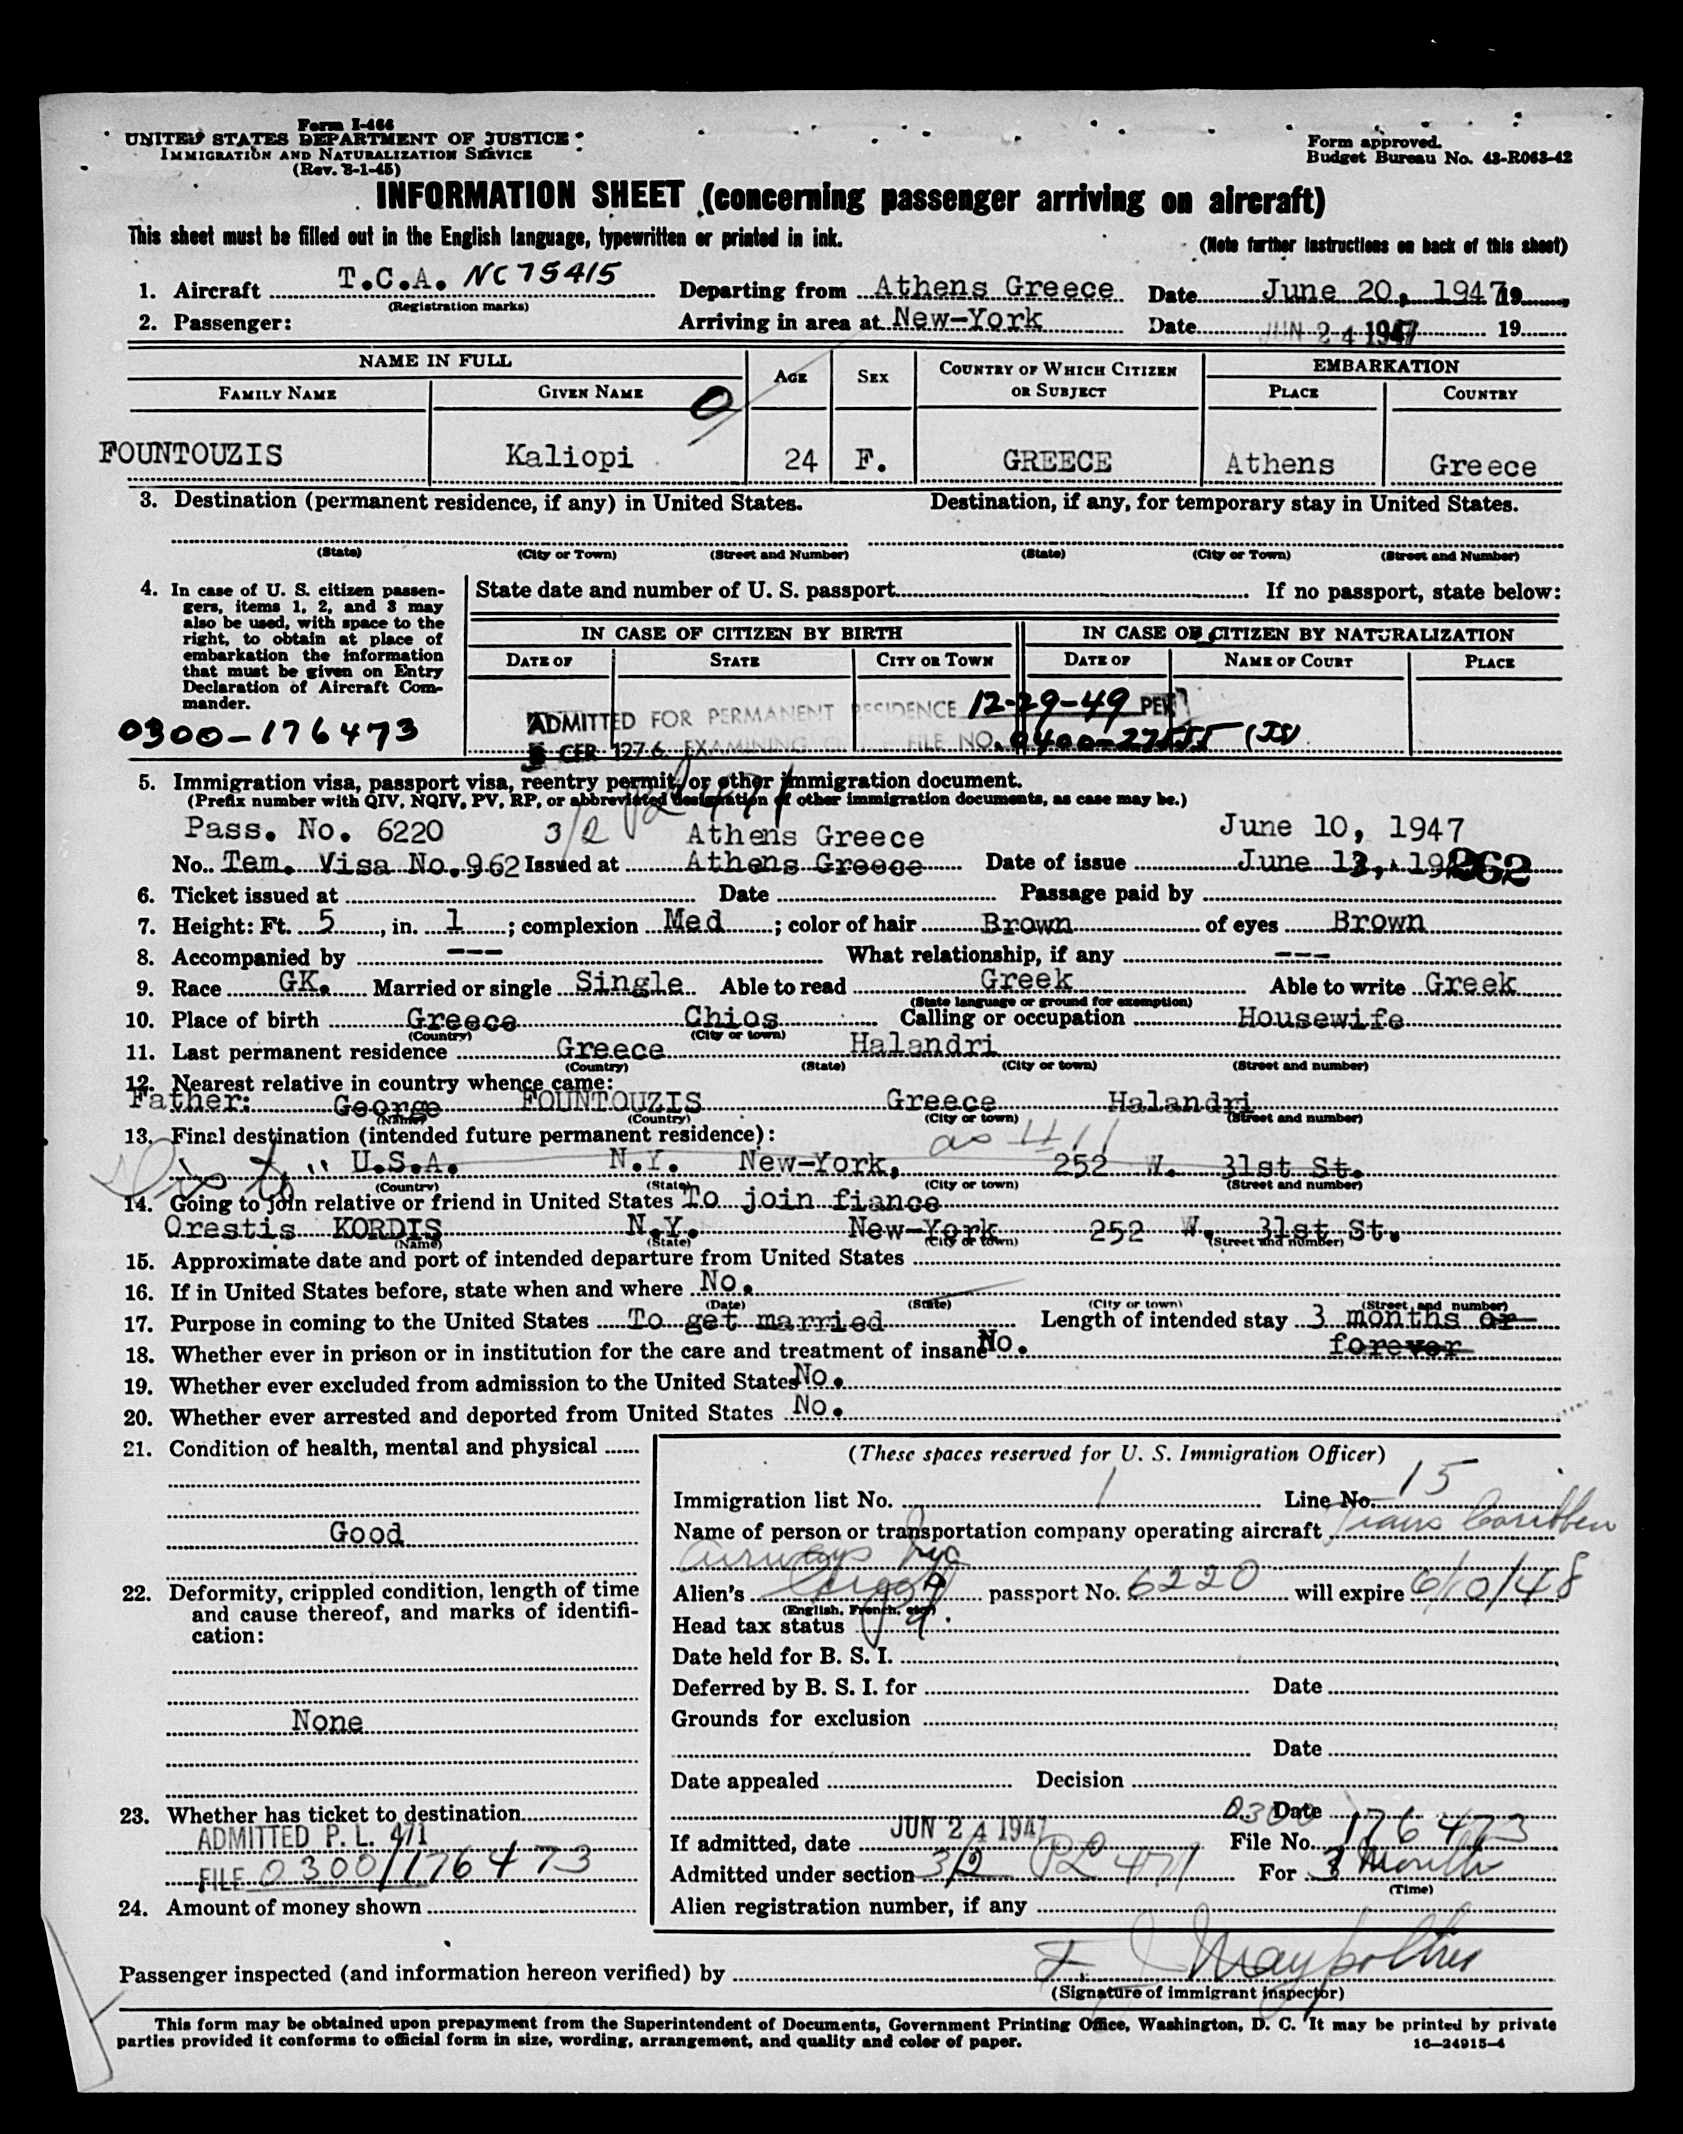 Form I-466
UNITED STATES DEPARTMENT OF JUSTICE
IMMIGRATION AND NATURALIZATION SERVICE
(Rev. 8-1-45)
Form approved.
Budget Bureau No. 43-R063-42
INFORMATION SHEET (concerning passenger arriving on aircraft)
This sheet must be filled out in the English language, typewritten or printed in ink.
(Note further instructions on back of this sheet)
1. Aircraft T.C.A. NC75415 Departing from Athens Greece Date June 20, 1947 19
(Registration marks)
2. Passenger: Arriving in area at New-York Date JUN 24 1947 19
NAME IN FULL AGE SEX COUNTRY OF WHICH CITIZEN OR SUBJECT EMBARKATION
FAMILY NAME GIVEN NAME PLACE COUNTRY
FOUNTOUZIS Kaliopi 24 F. GREECE Athens Greece
3. Destination (permanent residence, if any) in United States. Destination, if any, for temporary stay in United States.
(State) (City or Town) (Street and Number) (State) (City or Town) (Street and Number)
4. In case of U. S. citizen passen-
gers, items 1, 2, and 3 may
also be used, with space to the
right, to obtain at place of
embarkation the information
that must be given on Entry
Declaration of Aircraft Com-
mander.
0300-176473
State date and number of U. S. passport If no passport, state below:
IN CASE OF CITIZEN BY BIRTH IN CASE OF CITIZEN BY NATURALIZATION
DATE OF STATE CITY OR TOWN DATE OF NAME OF COURT PLACE
ADMITTED FOR PERMANENT RESIDENCE 12-29-49 PER
8 CFR 127.6. EXAMINING FILE NO.
5. Immigration visa, passport visa, reentry permit, or other immigration document.
(Prefix number with QIV, NQIV, PV, RP, or abbreviated designation of other immigration documents, as case may be.)
Pass. No. 6220 3/2 PL 471 Athens Greece June 10, 1947
No. Tem. Visa No. 962 Issued at Athens Greece Date of issue June 13, 19 962
6. Ticket issued at Date Passage paid by
7. Height: Ft. 5, in. 1; complexion Med; color of hair Brown of eyes Brown
8. Accompanied by --- What relationship, if any ---
9. Race GK. Married or single Single Able to read Greek Able to write Greek
(State language or ground for exemption)
10. Place of birth Greece Chios Calling or occupation Housewife
(Country) (City or town)
11. Last permanent residence Greece Halandri
(Country) (State) (City or town) (Street and number)
12. Nearest relative in country whence came:
Father: George FOUNTOUZIS Greece Halandri
(Name) (Country) (City or town) (Street and number)
13. Final destination (intended future permanent residence):
U.S.A. N.Y. New-York, 252 W. 31st St.
(Country) (State) (City or town) (Street and number)
14. Going to join relative or friend in United States To join fiance
Orestis KORDIS N.Y. New-York 252 W. 31st St.
(Name) (State) (City or town) (Street and number)
15. Approximate date and port of intended departure from United States
16. If in United States before, state when and where No.
(Date) (State) (City or town) (Street and number)
17. Purpose in coming to the United States To get married Length of intended stay 3 months or
forever
18. Whether ever in prison or in institution for the care and treatment of insane No.
19. Whether ever excluded from admission to the United States No.
20. Whether ever arrested and deported from United States No.
21. Condition of health, mental and physical
Good
22. Deformity, crippled condition, length of time
and cause thereof, and marks of identifi-
cation:
None
23. Whether has ticket to destination
ADMITTED P. L. 471
FILE 0300/176473
24. Amount of money shown
(These spaces reserved for U. S. Immigration Officer)
Immigration list No. 1 Line No. 15
Name of person or transportation company operating aircraft Trans Caribbean
Airways Inc
Alien's passport No. 6220 will expire 6/10/48
(English, French, etc.)
Head tax status
Date held for B. S. I.
Deferred by B. S. I. for Date
Grounds for exclusion
Date
Date appealed Decision
Date
If admitted, date JUN 24 1947 File No. 0300 176473
Admitted under section 3/2 PL 471 For 3 Months
(Time)
Alien registration number, if any
Passenger inspected (and information hereon verified) by
(Signature of immigrant inspector)
This form may be obtained upon prepayment from the Superintendent of Documents, Government Printing Office, Washington, D. C. It may be printed by private
parties provided it conforms to official form in size, wording, arrangement, and quality and color of paper.
16—24915-4